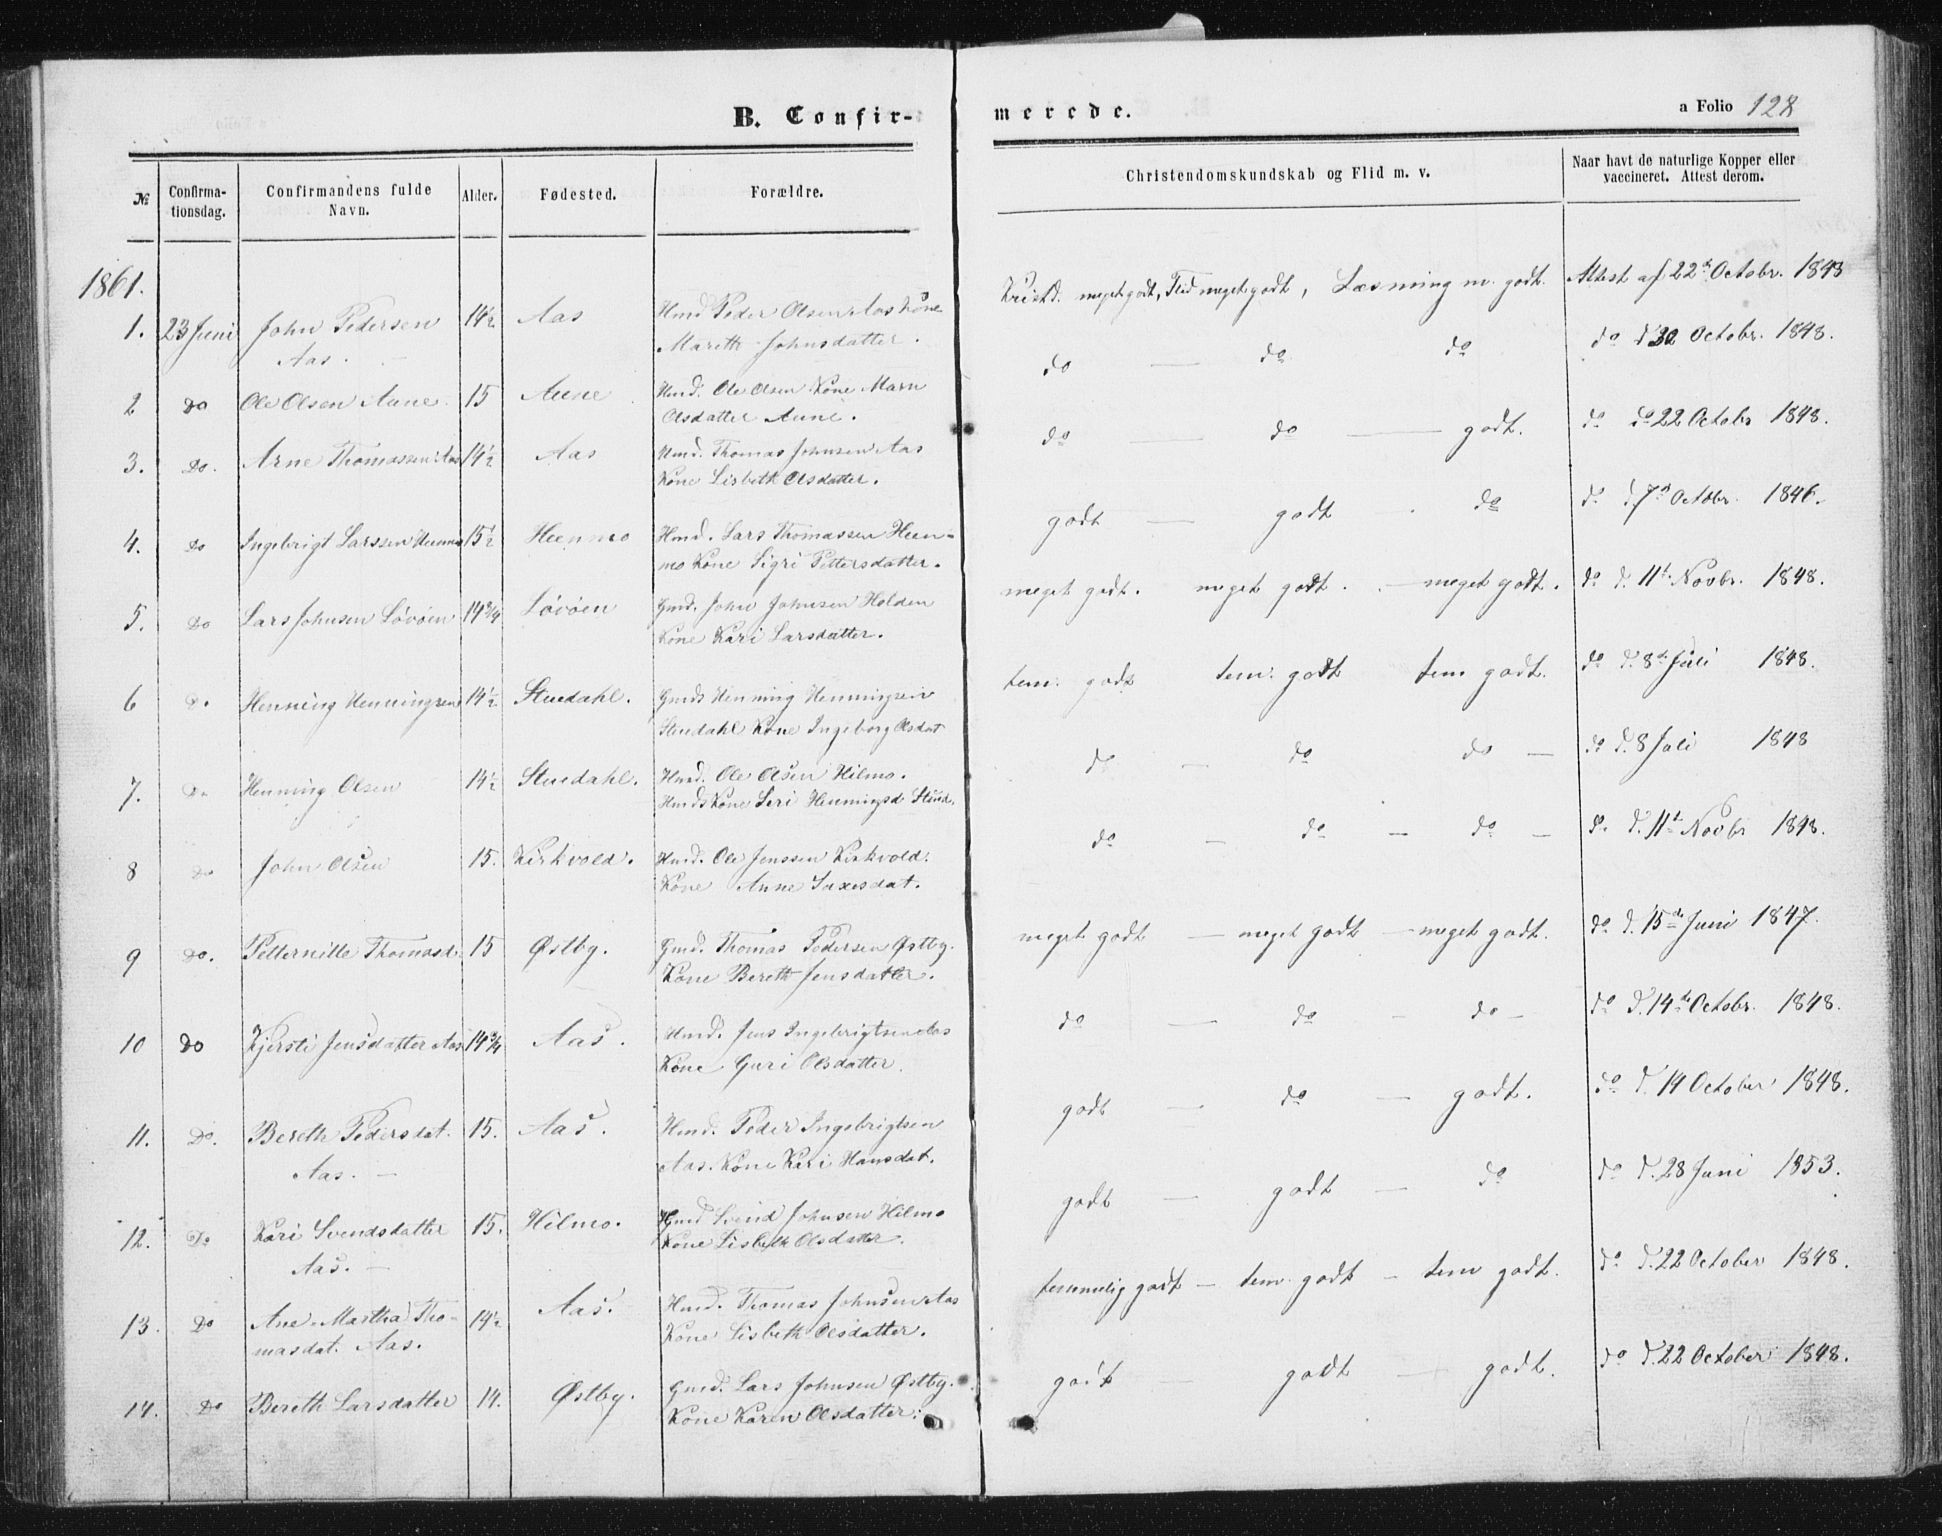 B. Confir-
merede.
a Folio 128
№
Confirma-
tionsdag.
Confirmandens fulde
Navn.
Alder.
Fødested.
Forældre.
Christendomskundskab og Flid m. v.
Naar havt de naturlige Kopper eller
vaccineret. Attest derom.
1861.
1. 23 Juni John Pedersen 14½ Aas Hmd Peder Olsen Aas Kone Kristd. meget godt, Flid meget godt, Læsning m. godt. Attest af 22d Octobr. 1848
Aas. Mareth Johnsdatter.
2 Do Ole Olsen Aune 15 Aune Hmd. Ole Olsen Kone Marn do — do do do d Octobr. 1848.
Olsdatter Aune.
3. Do. Arne Thomassen Aas 14½ Aas Hmd. Thomas Johnsen Aas do — do — godt. do do 22 Octobr 1848.
Kone Lisbeth Olsdatter.
4. Do Ingebrigt Larssen Heenmo 15½ Heenmo Hmd. Lars Thomassen Heen- godt — godt do do d. 7d Octobr. 1846.
mo Kone Sigri Pettersdatter.
5. Do Lars Johnsen Løvøen 14¾ Løvøen Gmd. John Johnsen Holden meget godt. meget godt. — meget godt. do d. 11t Novbr. 1848.
Kone Kari Larsdatter.
6 Do Henning Henningsen 14½ Stuedahl. Gmds Henning Henningsen tem. godt tem. godt tem godt. do d. 8d Juli 1848.
Stuedahl Kone Ingeborg Olsdat
7. Do Henning Olsen 14½ Stuedahl. Hmd. Ole Olsen Hilmo. do — do do — do d. 8 Juli 1848
Hmds Kone Seri Henningsd Stued.
8 do John Olsen 15. Kirkvold. Hmd. Ole Jenssen Kirkvold. do — do — do — do d. 11t Novbr 1848.
Kone Anne Saxesdat.
9 Do. Petternille Thomasd. 15 Østby. Gmd. Thomas Pedersen Østby. meget godt — meget godt — meget godt. do d. 15de Juni 1847.
Kone Bereth Jensdatter.
10 Do Kjersti Jensdatter Aas 14¾ Aas. Hmd. Jens Ingebrigtsen Aas do — do — do — do d. 14de Octobr. 1848.
Kone Guri Olsdatter.
11. Do. Bereth Pedersdat. 15. Aas. Hmd. Peder Ingebrigtsen godt — do — godt. do d. 14 October 1848.
Aas. — Aas. Kone Kari Hansdat.
12. Do Kari Svendsdatter 15. Hilmo. Hmd Svend Johnsen Hilmo godt — godt — do do d. 28 Juni 1853.
Aas. — Kone Lisbeth Olsdatter.
13. Do Ane Martha Tho- 14½ Aas. Hmd. Thomas Johnsen Aas temmelig godt — tem. godt — tem godt. do d. 22 October 1848.
masdat. Aas. Kone Lisbeth Olsdatter.
14. Do Bereth Larsdatter 14. Østby. Gmd. Lars Johnsen Østby. godt — godt — godt. do d. 22 October 1848.
Kone Karen Olsdatter.